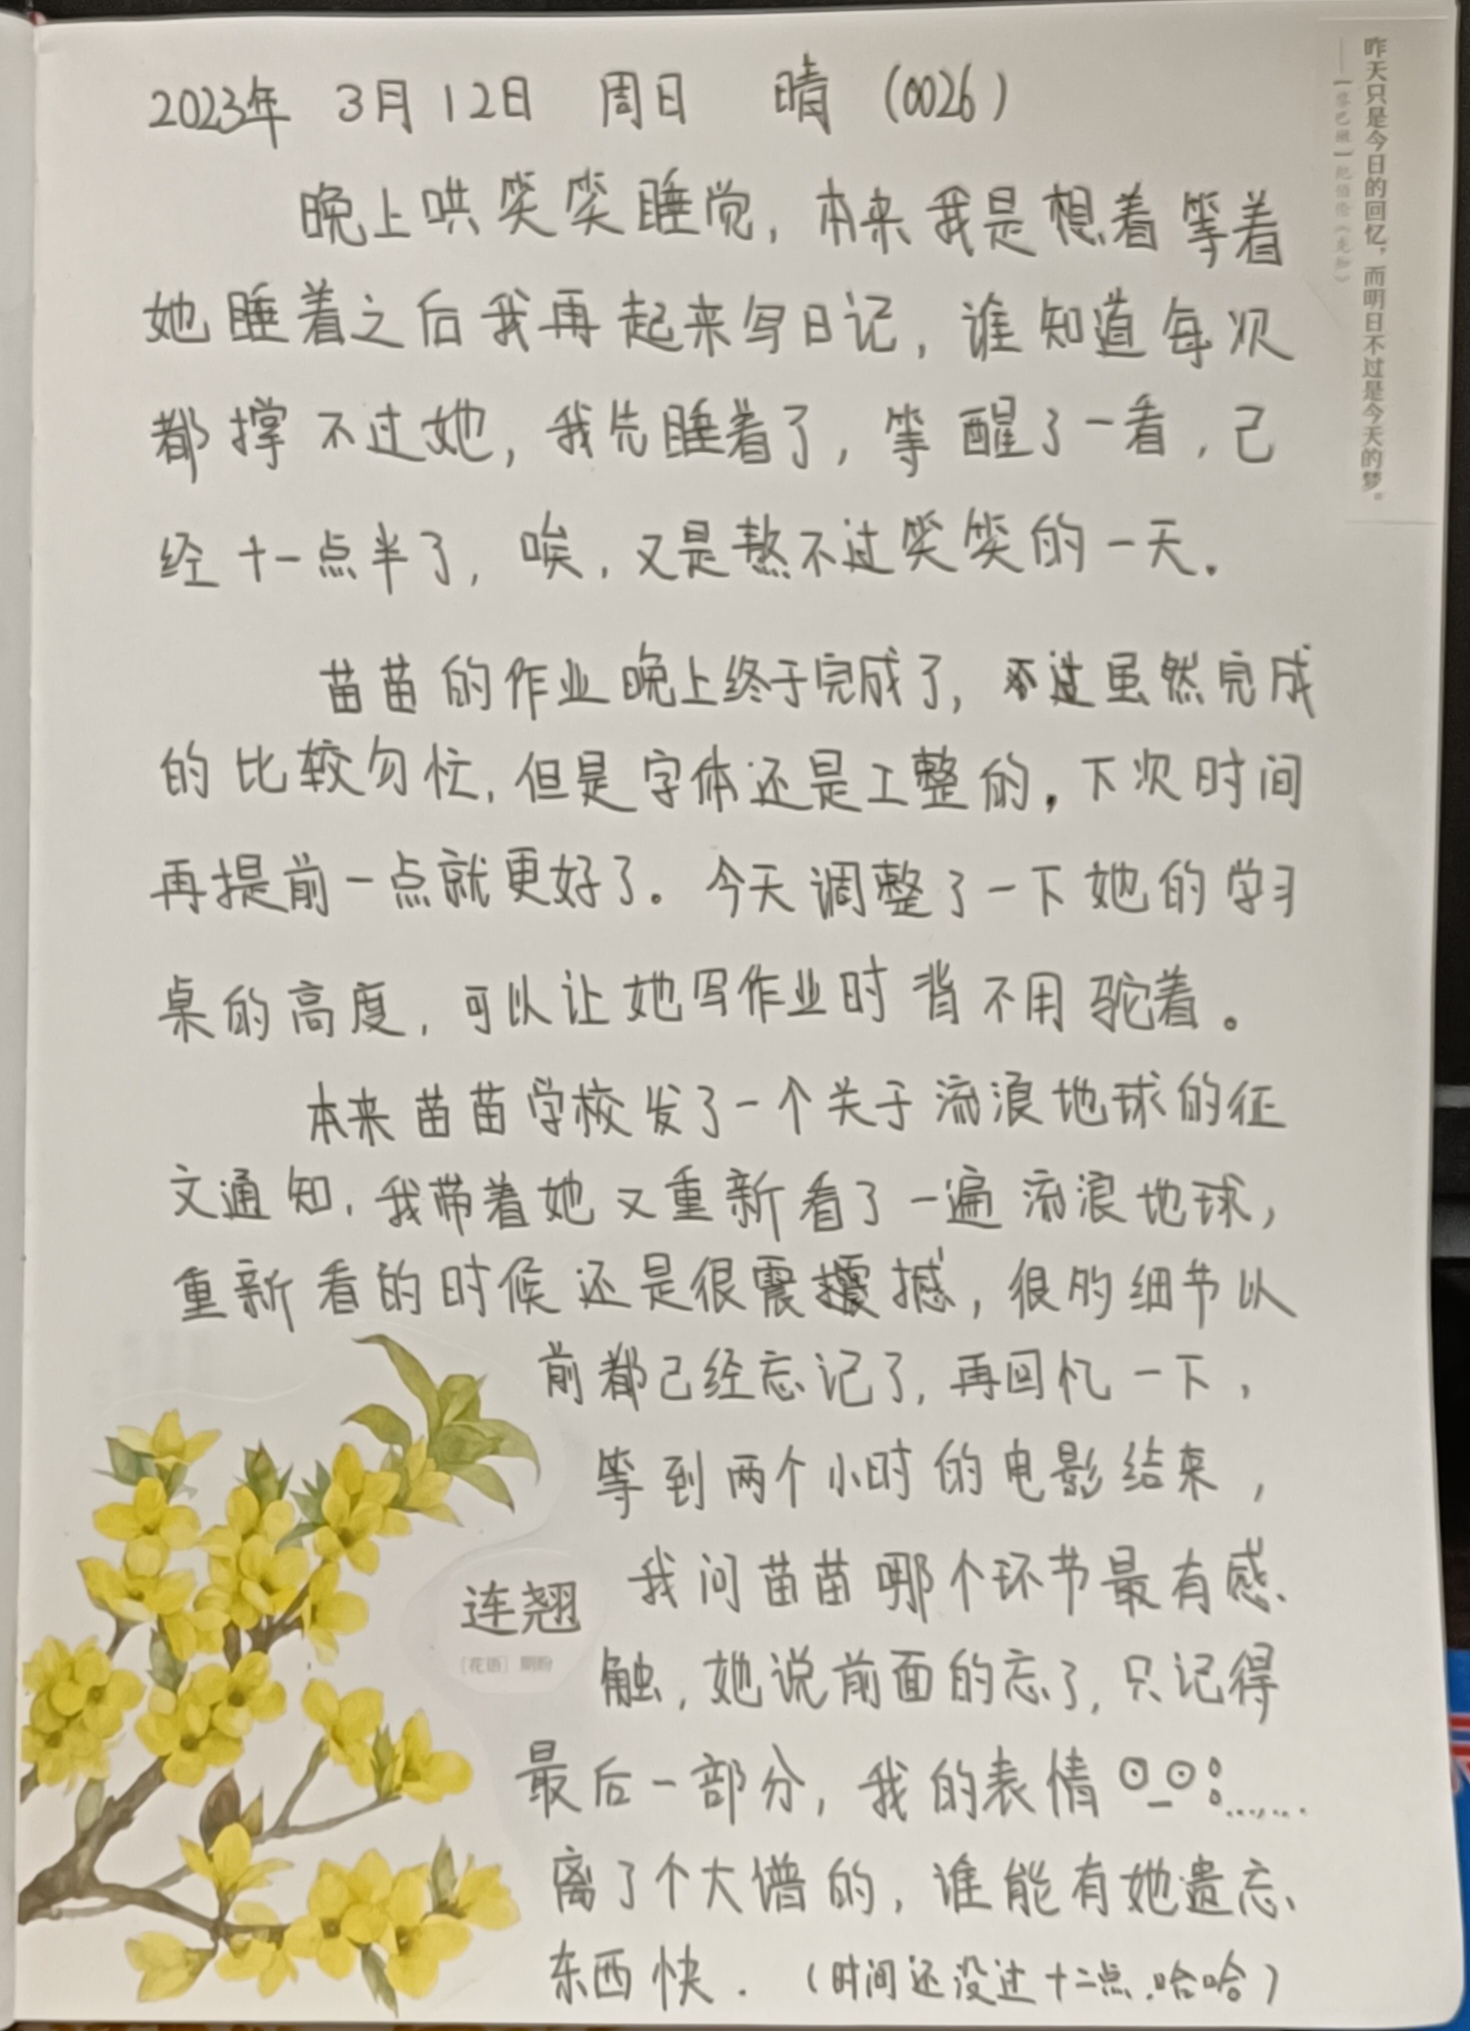 2023年 3月12日 周日 晴 (0026)
晚上哄笑笑睡觉，本来我是想着等着
她睡着之后我再起来写日记，谁知道每次
都撑不过她，我先睡着了，等醒了一看，已
经十一点半了，唉，又是熬不过笑笑的一天。
苗苗的作业晚上终于完成了，不过虽然完成
的比较匆忙，但是字体还是工整的，下次时间
再提前一点就更好了。今天调整了一下她的学习
桌的高度，可以让她写作业时背不用驼着。
本来苗苗学校发了一个关于流浪地球的征
文通知，我带着她又重新看了一遍流浪地球，
重新看的时候还是很震撼，很的细节以
前都已经忘记了，再回忆一下，
等到两个小时的电影结束，
我问苗苗哪个环节最有感
触，她说前面的忘了，只记得
最后一部分，我的表情⊙_⊙:……
离了个大谱的，谁能有她遗忘
东西快．（时间还没过十二点，哈哈）
连翘
［花语］期盼
昨天只是今日的回忆，而明日不过是今天的梦。
——［黎巴嫩］纪伯伦《先知》